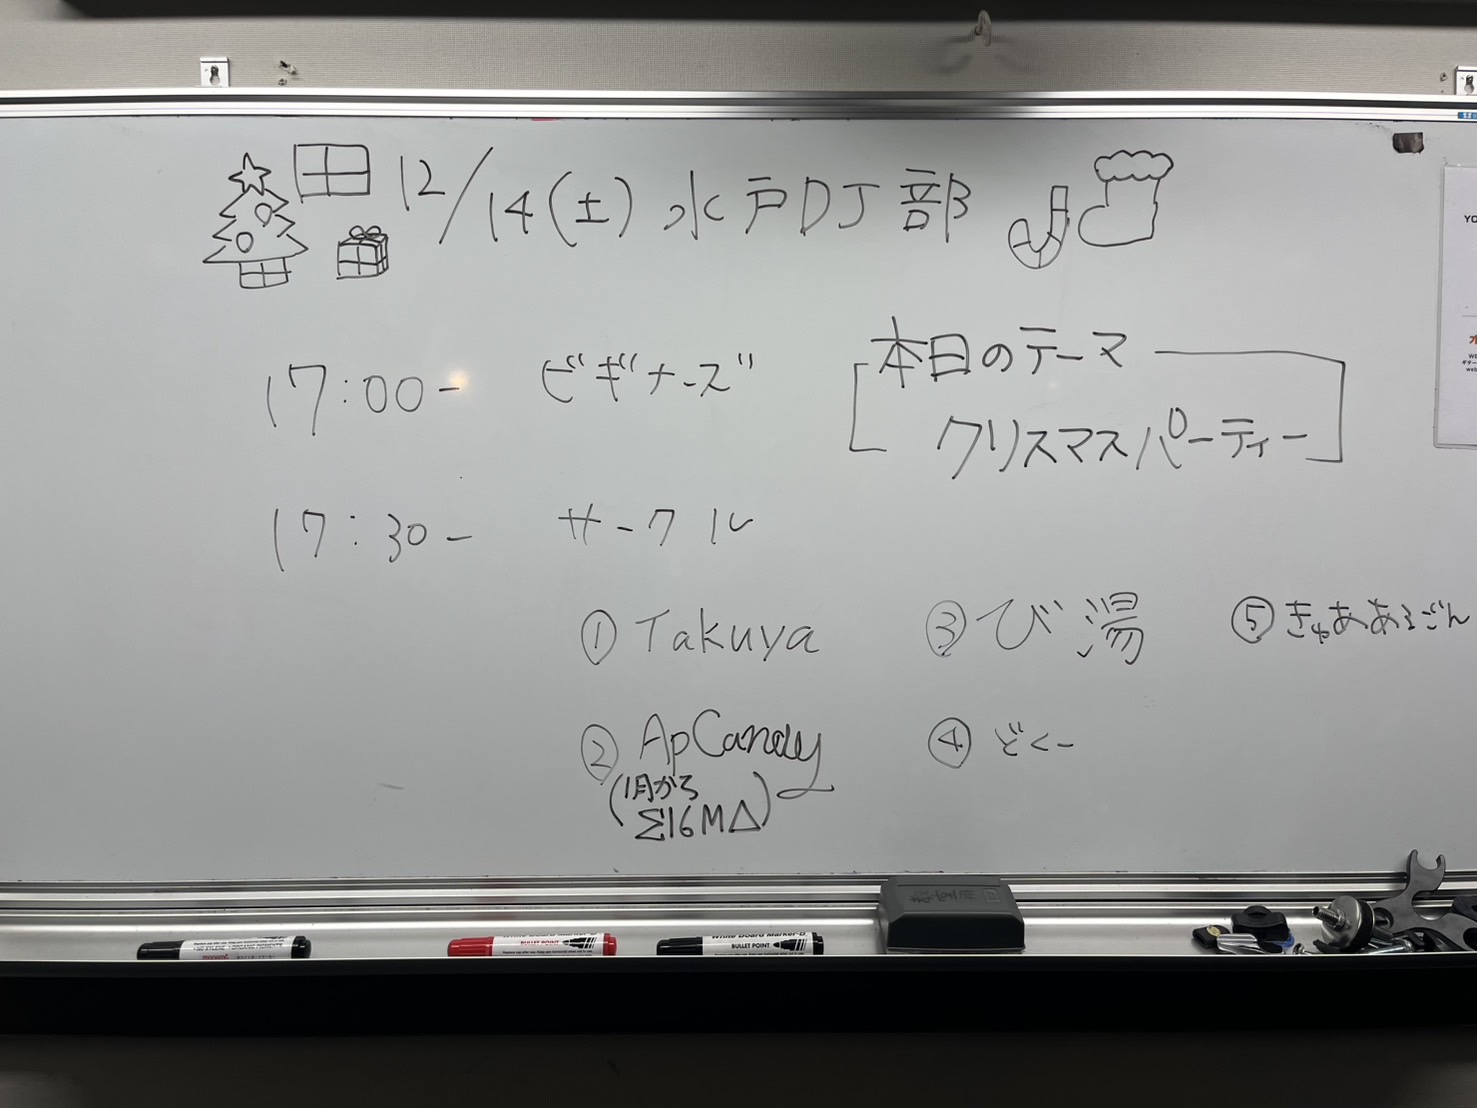 12/14(土) 水戸DJ部
本日のテーマ
クリスマスパーティー
17:00- ビギナーズ
17:30- サークル
① Takuya
② ApCandy
(1月から
Σ16MΔ)
③ び湯
④ どくー
⑤ きゅああるごん
White Board Marker-B
BULLET POINT
White Board Marker-B
BULLET POINT
YO